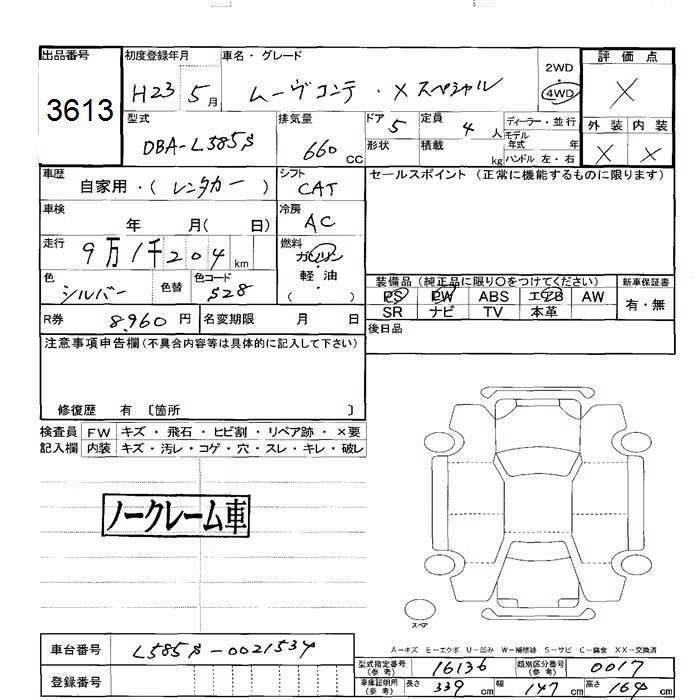 出品番号 初度登録年月 車名・グレード 2WD ・ 4WD 評価点
3613 H23 5月 ムーヴコンテ ・ Xスペシャル X
型式 排気量 ドア 5 定員 4人 ディーラー・並行 外装 内装
DBA-L585S 660 CC 形状 積載 kg モデル年式 年 ハンドル 左・右 X X
車歴 自家用・( レンタカー ) シフト CAT セールスポイント (正常に機能するものに限ります)
車検 年 月( 日) 冷房 AC
走行 9万1千204 km 燃料 ガソリン ・ 軽油 ( )
色 シルバー 色替 色コード S28 装備品 (純正品に限り○をつけてください) 新車保証書
PS PW ABS エアB AW 有・無
SR ナビ TV 本革
R券 8,960円 名変期限 月 日 後日品
注意事項申告欄(不具合内容等は具体的に記入して下さい)
修復歴 有 〔箇所 〕
検査員 FW キズ・飛石・ヒビ割・リペア跡・×要
記入欄 内装 キズ・汚レ・コゲ・穴・スレ・キレ・破レ
ノークレーム車
スペア
A-キズ E-エクボ U-凹み W-補修跡 S-サビ C-腐食 XX-交換済
車台番号 L585S-0021534
登録番号
型式指定番号(参考) 16136 類別区分番号(参考) 0017
車庫証明用(参考) 長さ 339 cm 幅 147 cm 高さ 164 cm